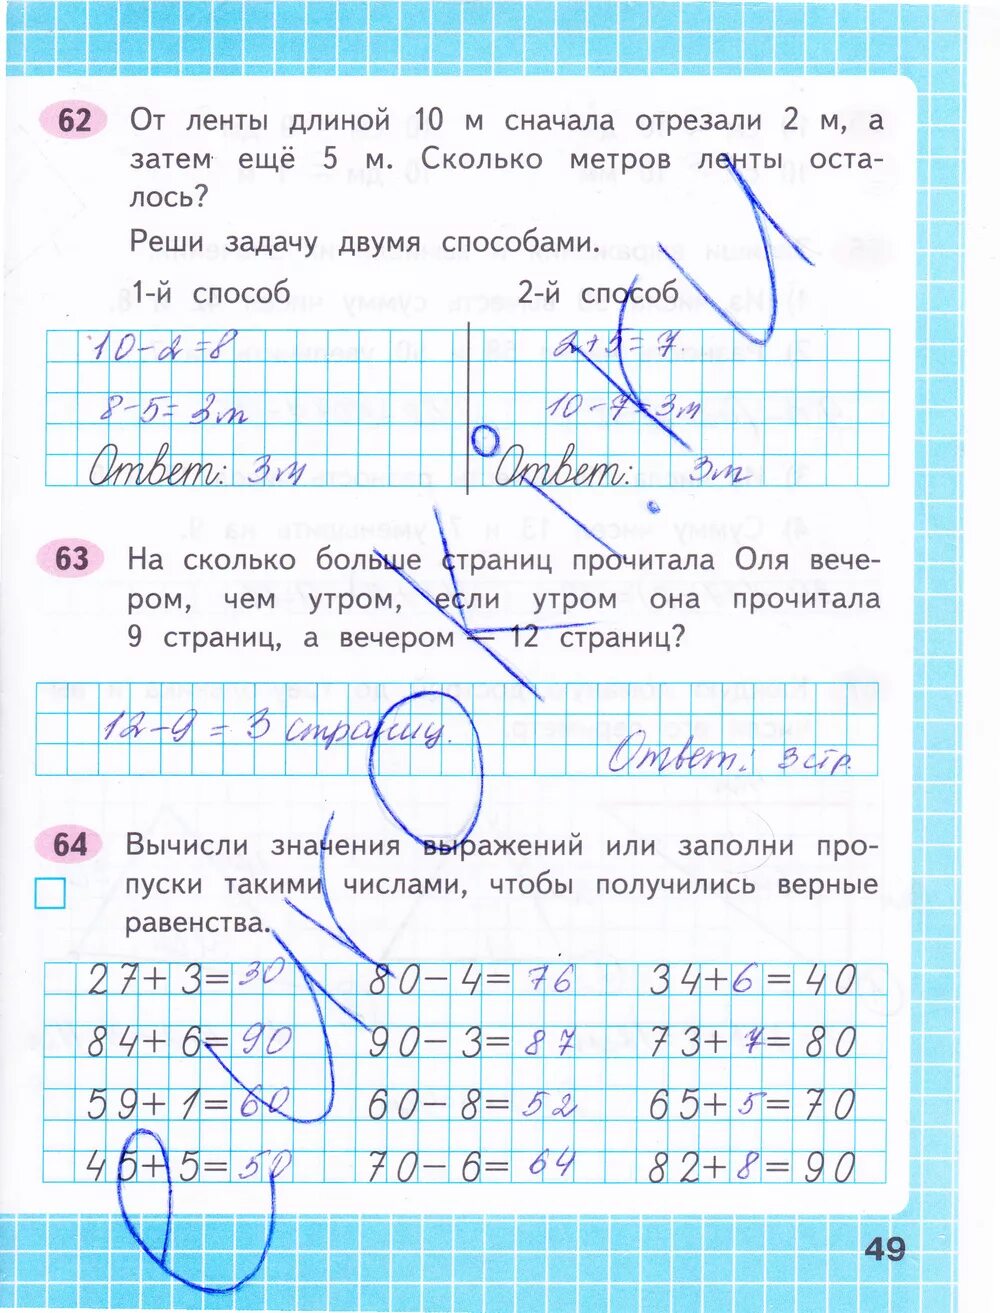 62 От ленты длиной 10 м сначала отрезали 2 м, а
затем ещё 5 м. Сколько метров ленты оста-
лось?
Реши задачу двумя способами.
1-й способ 2-й способ
10-2=8 2+5=7.
8-5=3м 10-7=3м
Ответ: 3м Ответ: 3м
63 На сколько больше страниц прочитала Оля вече-
ром, чем утром, если утром она прочитала
9 страниц, а вечером — 12 страниц?
12-9=3 страниц.
Ответ: 3 стр.
64 Вычисли значения выражений или заполни про-
пуски такими числами, чтобы получились верные
равенства.
27+3=30 80-4=76 34+6=40
84+6=90 90-3=87 73+7=80
59+1=60 60-8=52 65+5=70
45+5=50 70-6=64 82+8=90
49